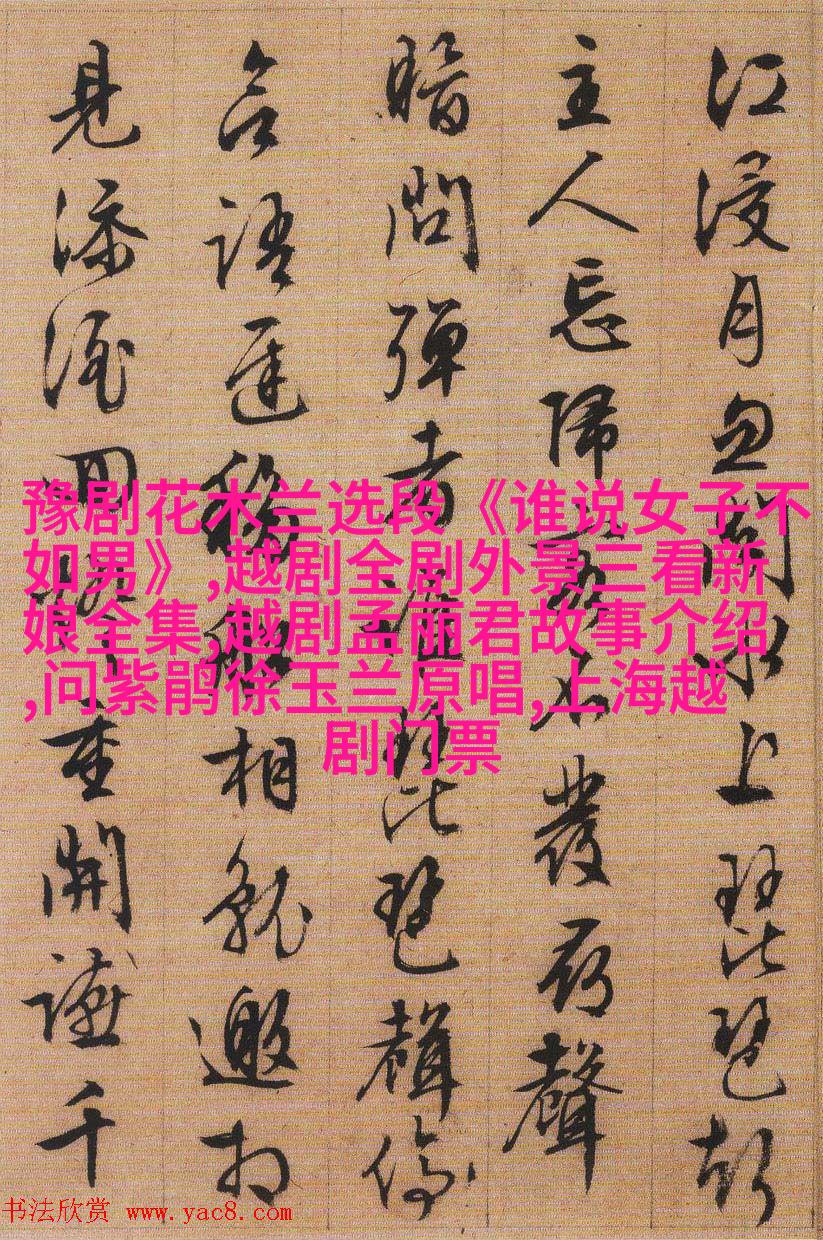 江浸月忽聞水上琵琶
主人忘歸客不發尋聲
暗問彈者誰琵琶聲停
語遲移船相邀相
見添酒回燈重開讌千
豫剧花木兰选段《谁说女子不
如男》,越剧全剧外景三看新
娘全集,越剧孟丽君故事介绍
,问紫鹃徐玉兰原唱,上海越
剧门票
书法欣赏 www.yac8.com